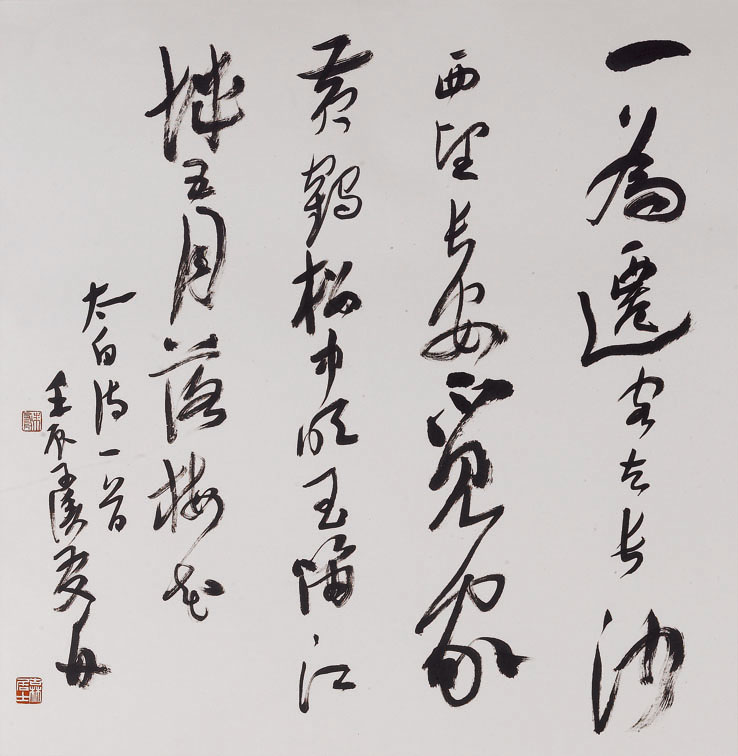 一為遷客去长沙
西望长安不見家
黄鶴楼中吹玉笛江
城五月落梅花
太白诗一首
壬辰